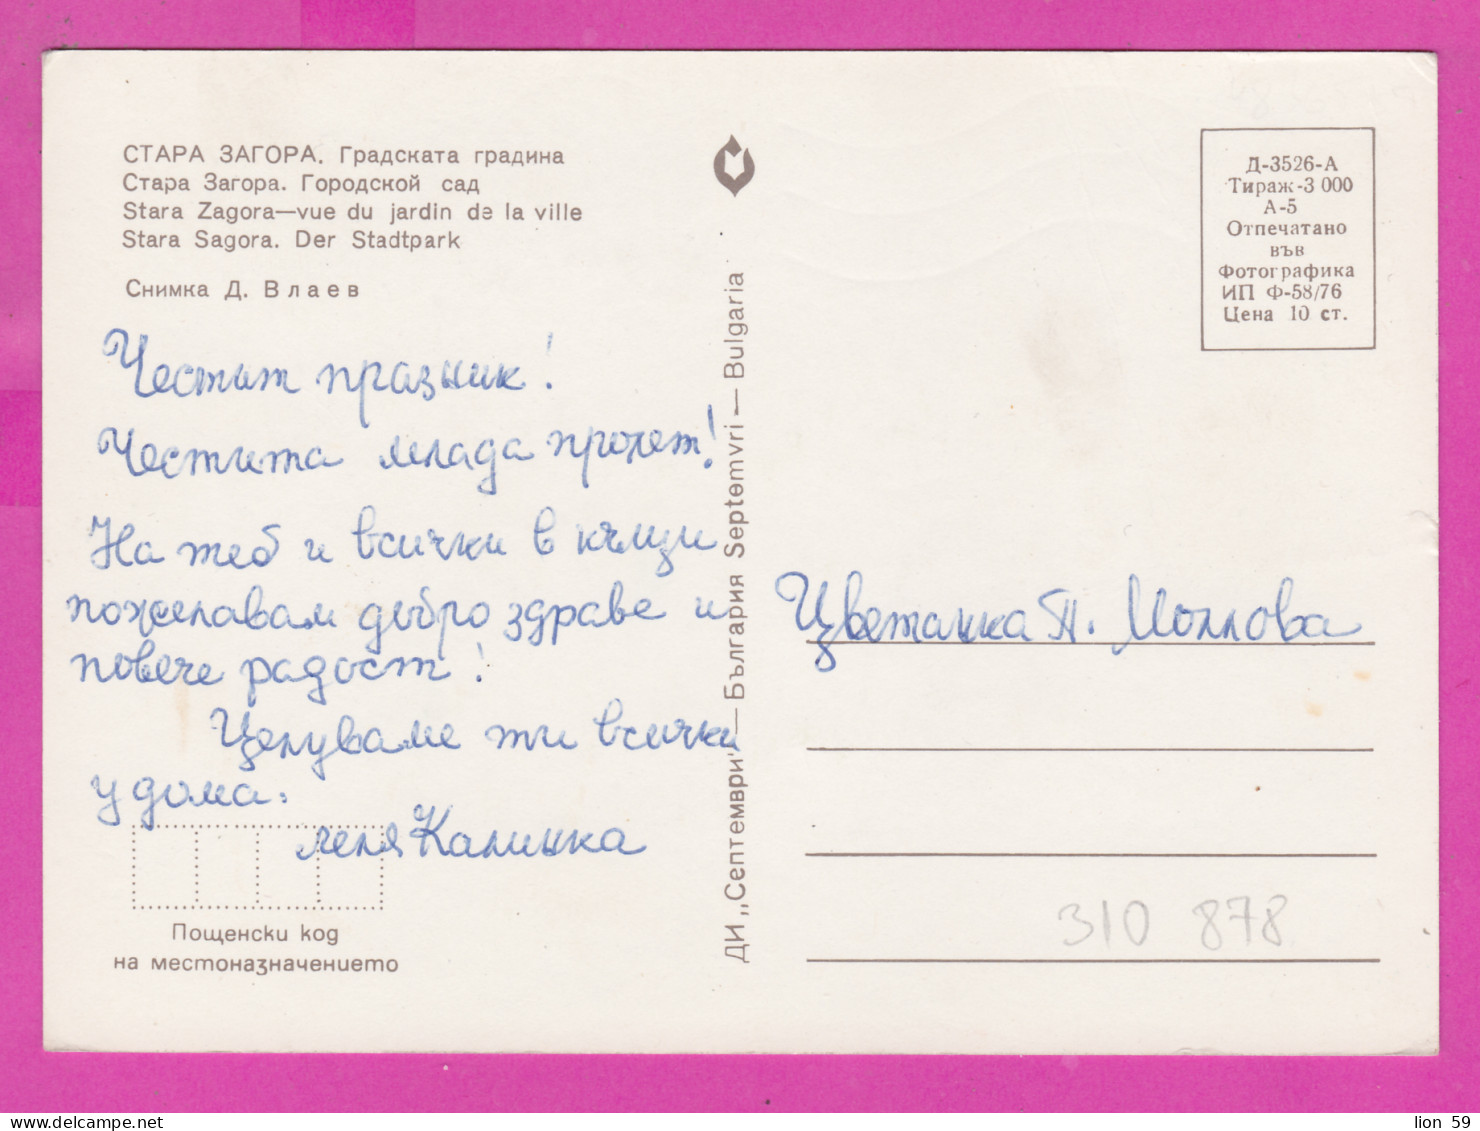 СТАРА ЗАГОРА. Градската градина
Стара Загора. Городской сад
Stara Zagora—vue du jardin de la ville
Stara Sagora. Der Stadtpark
Снимка Д. Влаев
Честит празник!
Честита млада пролет!
На теб и всички в къщи
пожелавам добро здраве и
повече радост!
Целуваме ти всички
у дома.
леля Калинка
Пощенски код
на местоназначението
ДИ „Септември" — България Septemvri — Bulgaria
Д-3526-А
Тираж-3 000
А-5
Отпечатано
във
Фотографика
ИП Ф-58/76
Цена 10 ст.
Цветанка П. Моллова
310 878
lion 59